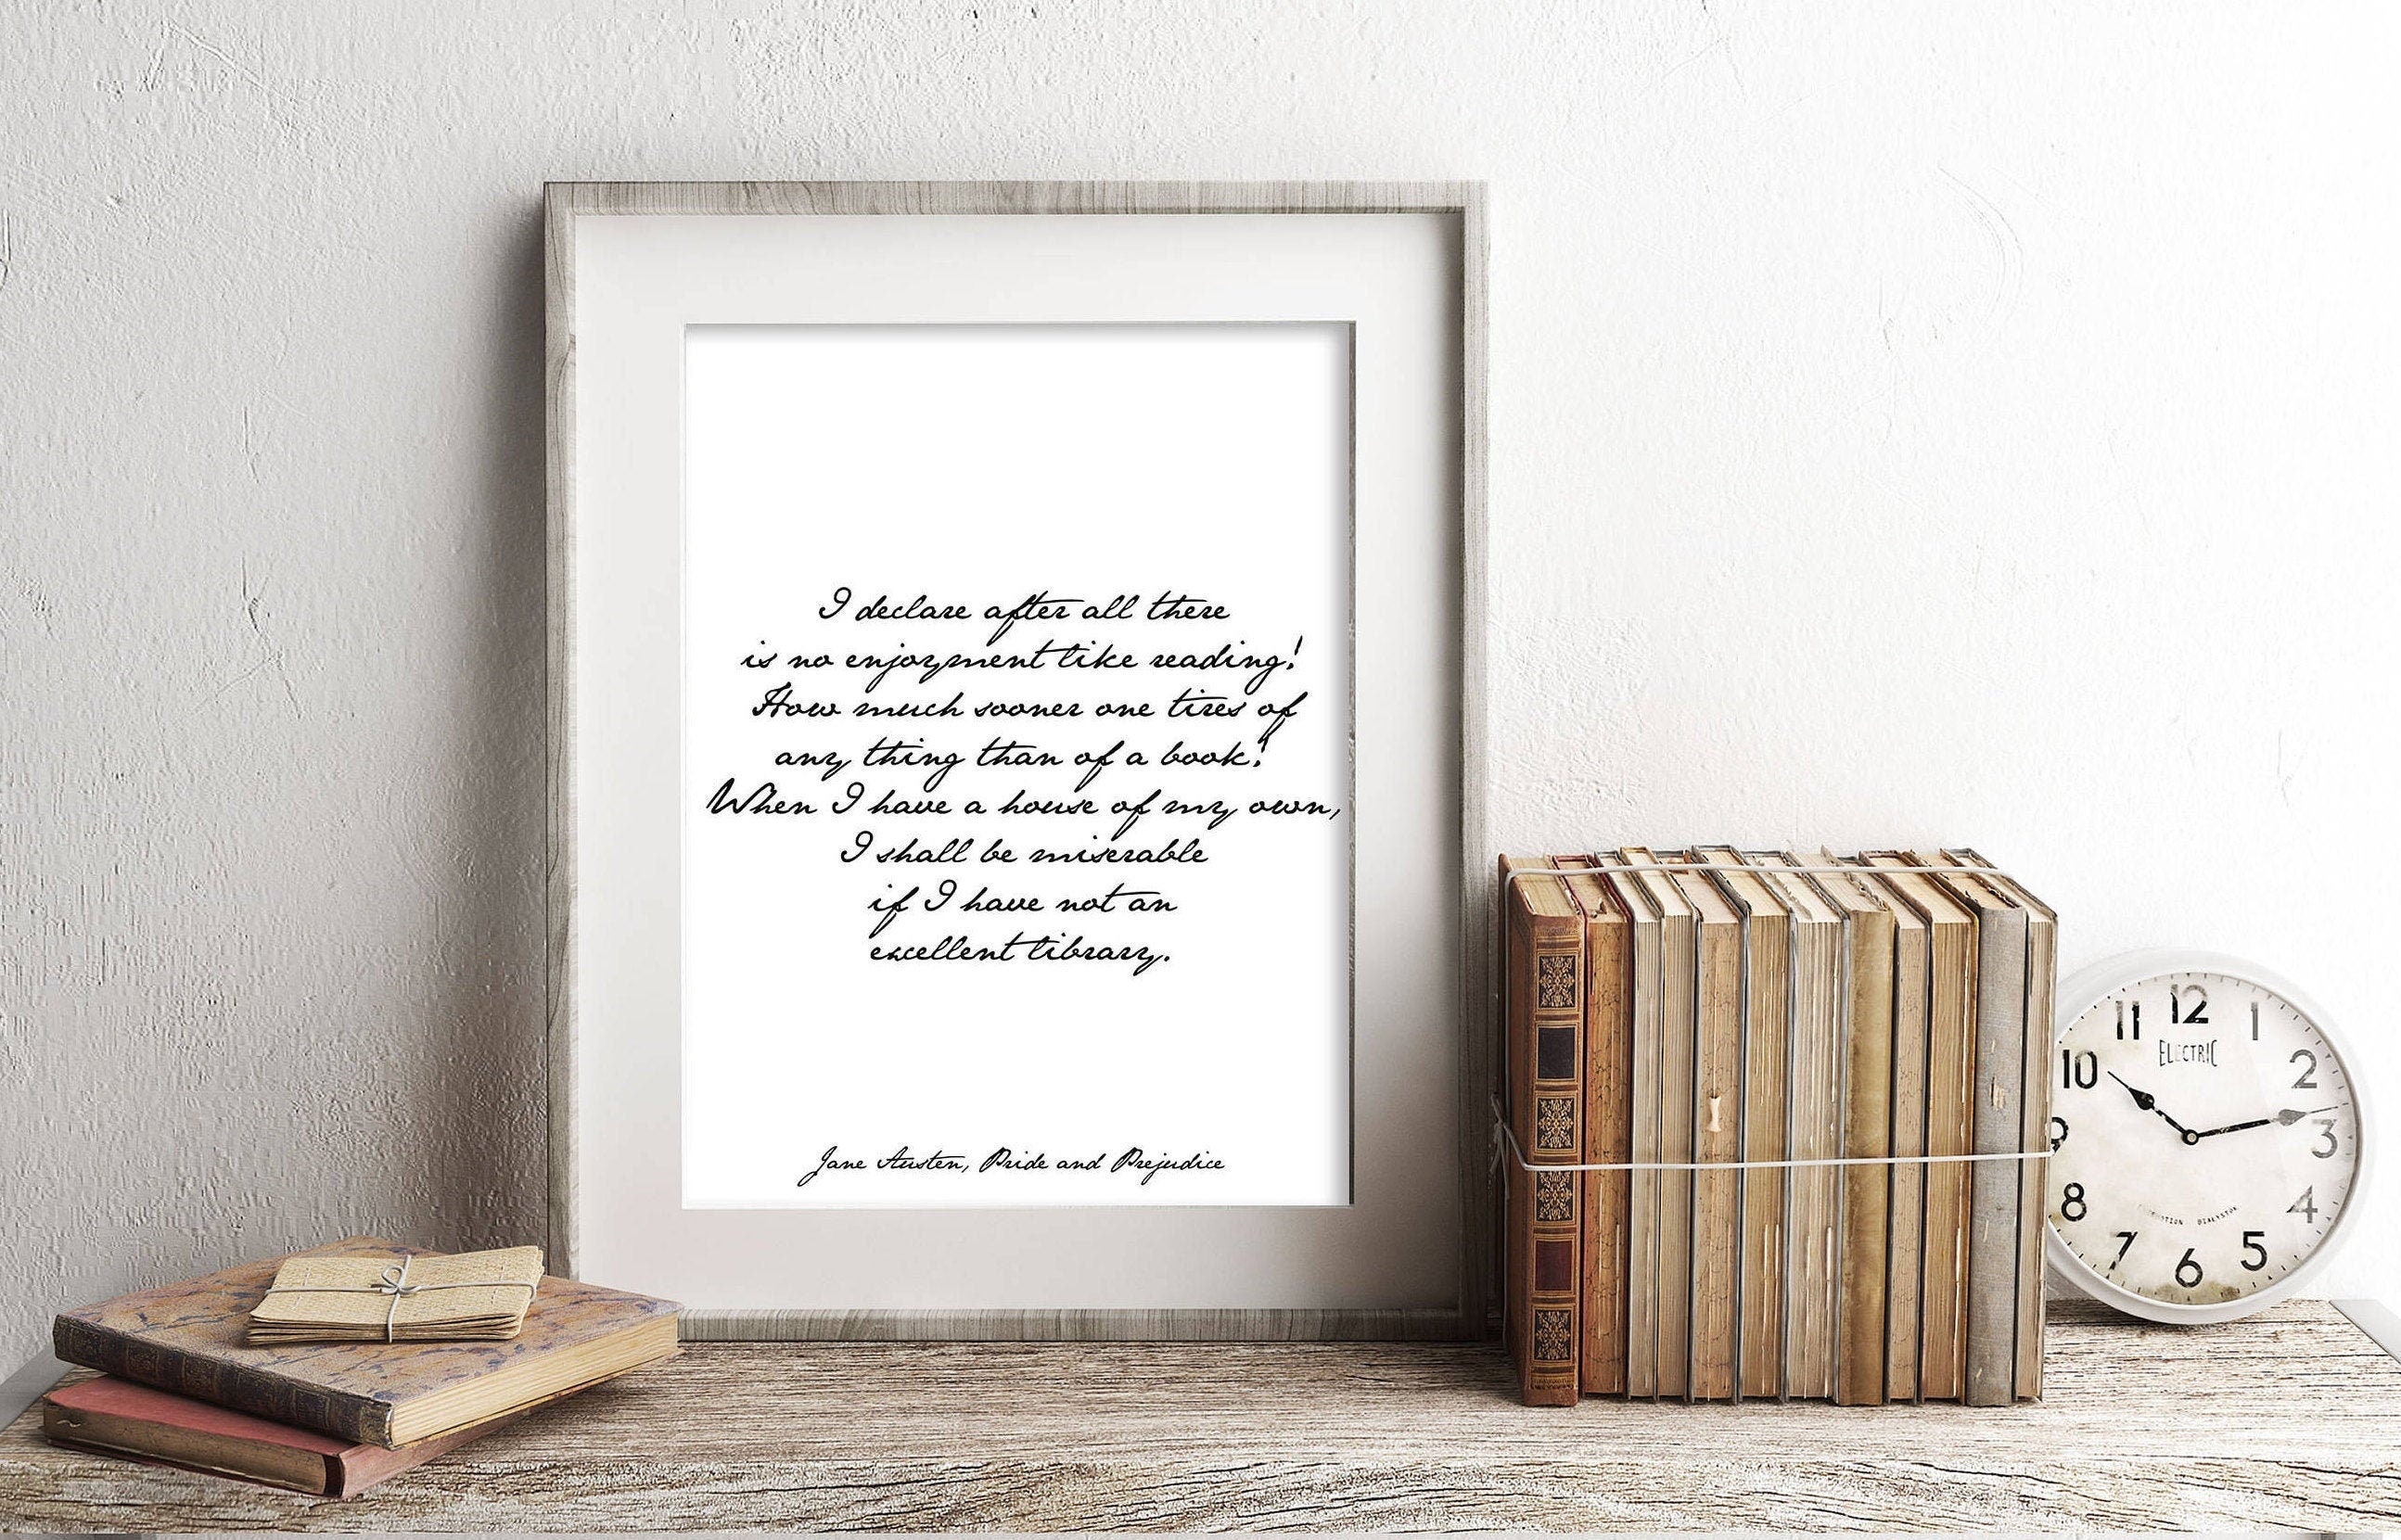 I declare after all there
is no enjoyment like reading!
How much sooner one tires of
any thing than of a book!
When I have a house of my own,
I shall be miserable
if I have not an
excellent library.
Jane Austen, Pride and Prejudice
12
11
1
ELECTRIC
10
2
9
3
8
4
7
5
6